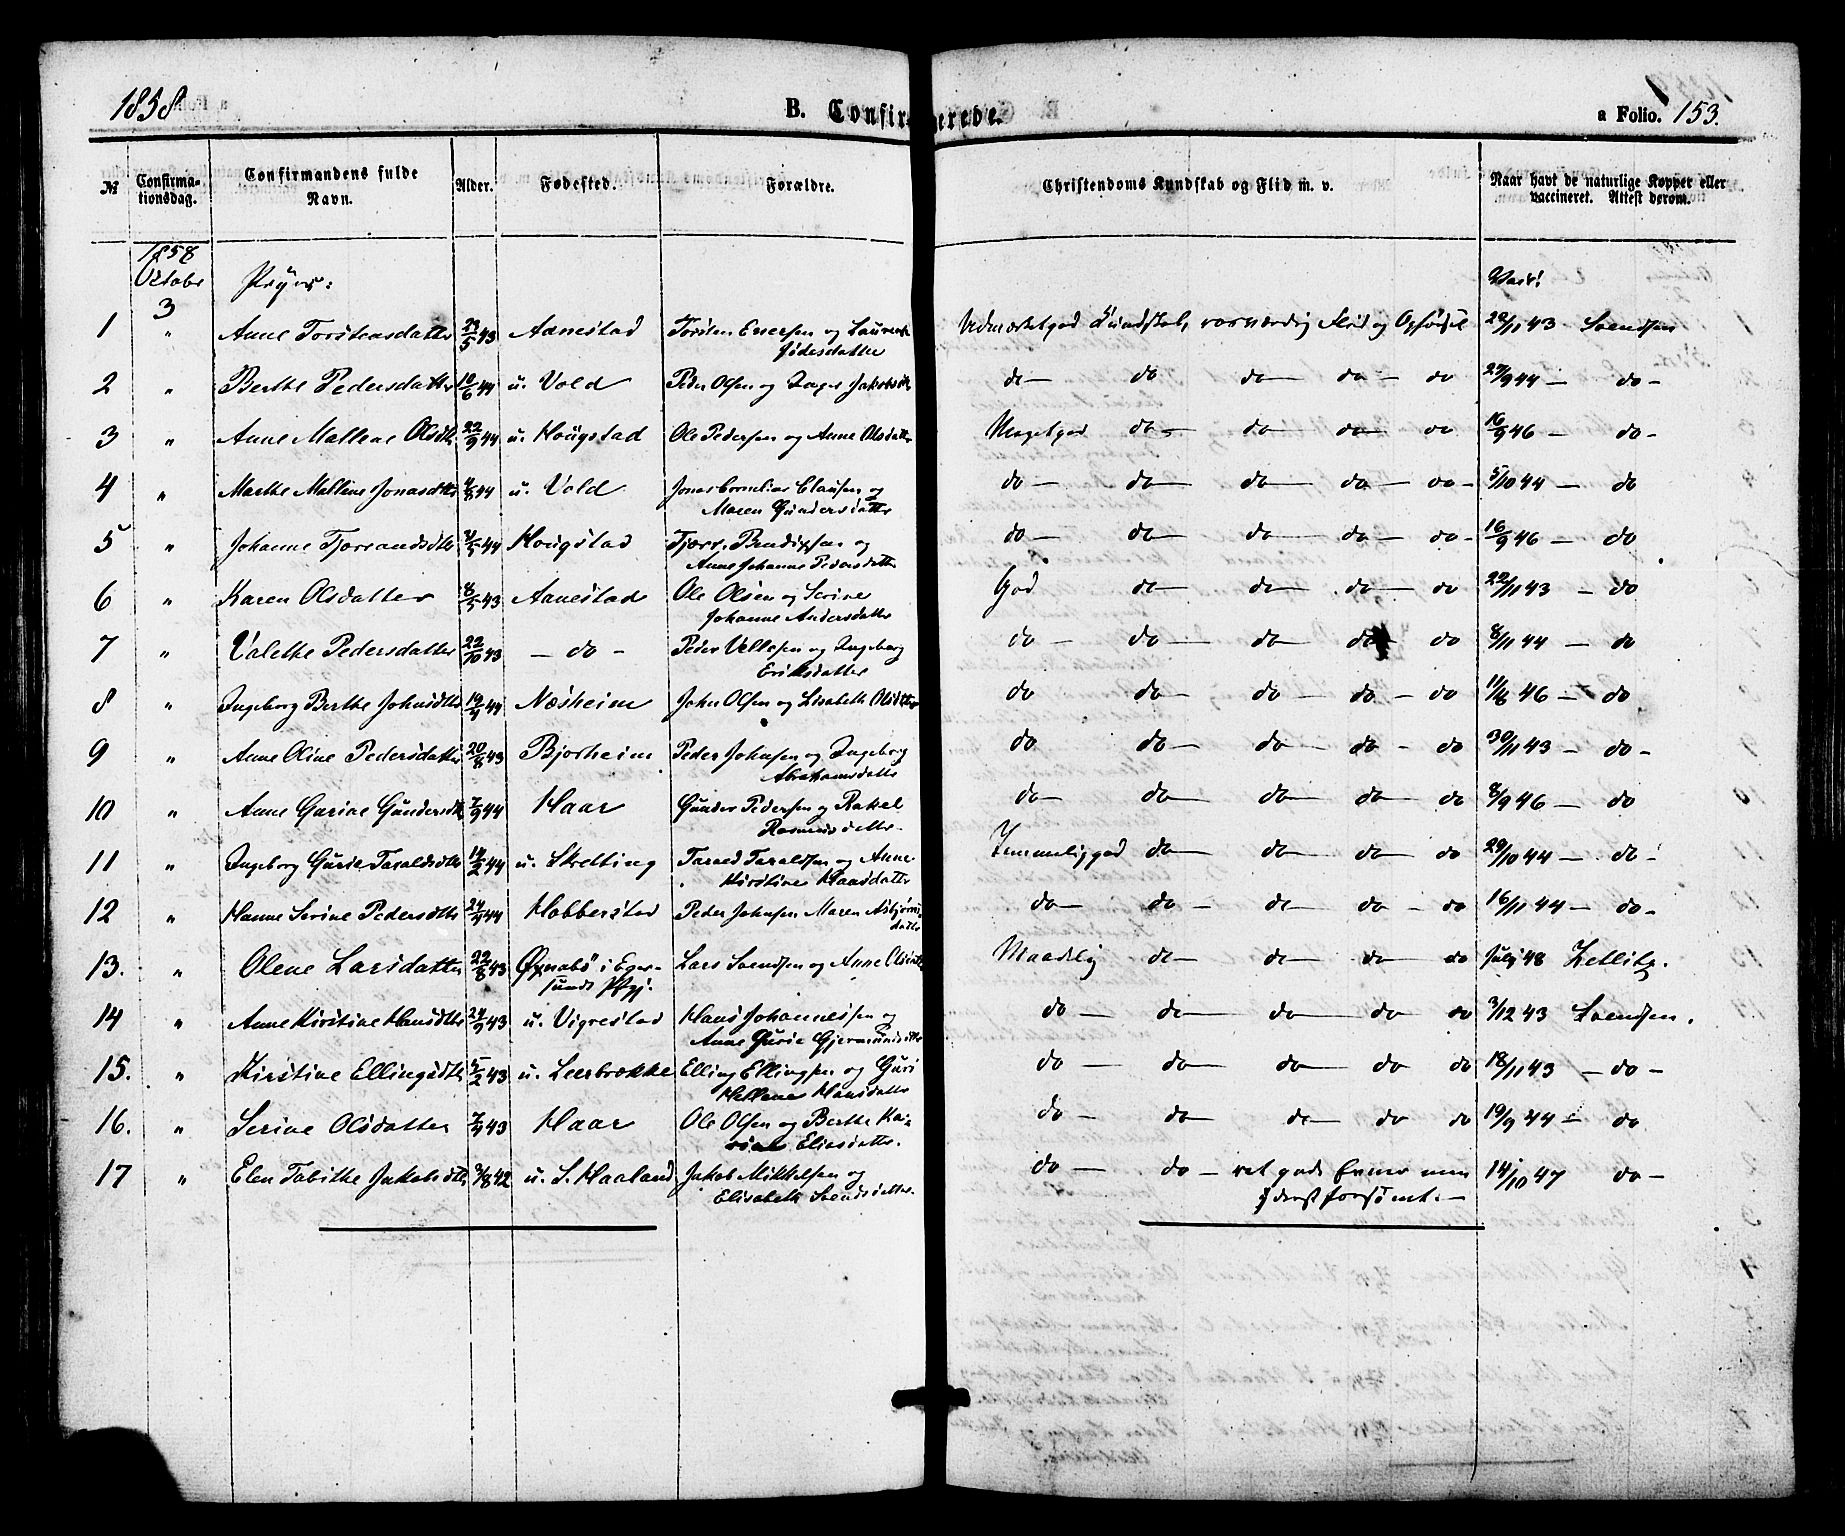 1858
B. Confirmerede.
a Folio. 153.
№ Confirmationsdag. Confirmandens fulde Navn. Alder. Fødested. Forældre. Christendoms Kundskab og Flid m. v. Naar havt de naturlige Kopper eller vaccineret. Attest derom.
1858
October
3 Piger: Vacc:
1 " Anne Torstensdatter 23/5 43 Aanestad Torsten Enersen og
Udmærketgod Kundskab, roesværdig Flid og Opførsel 22/11 43 Svendsen
2 " Berthe Pedersdatter 10/6 44 u. Vold Peder Olsen og Inger Jakobsdtr do — do do — do — do 27/9 44 — do —
3 " Anne Mallene Olsdtr 22/9 44 u. Hougstad Ole Pedersen og Anne Olsdatter Megetgod do — do — do — do 16/9 46 — do —
4 " Marthe Malline Jonasdtr 44 u. Vold Jonas Cornelius Clausen og
Maren Gundersdatter do — do — do — do — do — 5/10 44 — do
5 " Johanne Tjorrandsdtr 44 Hougstad Tjørr. og
Anne Johanne Pedersdatter do — do — do — do — do — 16/9 46 — do
6 " Karen Olsdatter 8/5 43 Aanestad Ole Olsen og Serine
Johanne Andersdatter God do — do — do — do 22/11 43 — do
7 " Valethe Pedersdatter 22/10 43 — do — Peder Vellesen og Ingeborg
Eriksdatter do — do — do — do — do 8/11 44 — do
8 " Ingeborg Berthe Johnsdtr 44 Næsheim John Olsen og Lisabeth Olsdatter do do — do — do — do 46 — do
9 " Anne Oline Pedersdatter 20/8 43 Bjorheim Peder Johnsen og Ingeborg
Abrahamsdatter do do — do — do — do 30/11 43 — do —
10 " Anne Gurine Gundersdtr 7/9 44 Haar Gunder Pedersen og Rakel
Rasmusdatter. do — do — do — do — do 8/9 46 — do
11 " Ingeborg Gurie Taraldsdtr 14/2 44 u. Skretting Taraed Taraldsen og Anne
Kirstine Hansdatter Temmeliggod do — do — do — do 29/10 44 — do
12 " Hanne Serine Pedersdtr 44 Hobberstad Peder Johnsen Maren Asbjørnsdatter do — do — do — do — do 16/11 44 — do —
13. " Olene Larsdatter 22/8 43 i Egersunds Pgj. Lars Svendsen og Anne Olsdtr Maadelig do — do — do — do July 48 Zetlitz.
14 " Anne Kirstine Hansdtr 24/9 43 u. Vigrestad Hans Johannessen og
Anne Gurie Gjermundsdtr do — do — do — do — do 3/12 43 Svendsen.
15. " Kirstine Ellingsdtr 5/2 43 u. Leerbrække Elling Ellingsen og Guri
Hellene Hansdatter do — do — do — do do 18/11 43 — do —
16. " Serine Olsdatter 43 Haar Ole Olsen og Berthe
Eliasdatter. do — do — do — do do 19/9 44 — do
17 " Elen Tabithe Jakobsdtr 3/8 42 u. S. Haaland Jakob Mikkelsen og
Elisabeth Svendsdatter. do — do — ret gode Evner men
yderst forsømt. — 14/10 47 do —